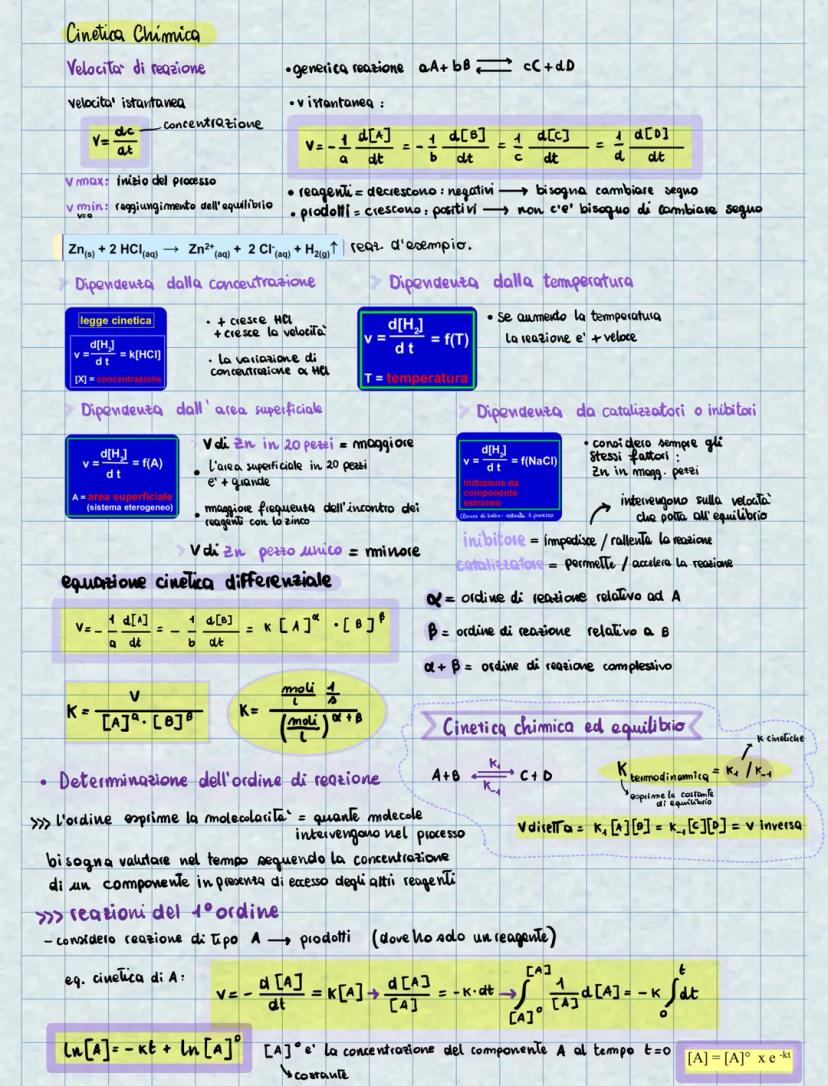 Cinetica Chimica
Velocita' di reazione
• generica reazione aA + bB ⇄ cC + dD
velocita' istantanea
• v istantanea :
V = dc/dt — concentrazione
V = - 1/a d[A]/dt = - 1/b d[B]/dt = 1/c d[C]/dt = 1/d d[D]/dt
V max: inizio del processo
V min: raggiungimento dell'equilibrio
V=0
• reagenti = decrescono : negativi → bisogna cambiare segno
• prodotti = crescono : positivi → non c'e' bisogno di cambiare segno
Zn(s) + 2 HCl(aq) → Zn2+(aq) + 2 Cl-(aq) + H2(g)↑ reaz. d'esempio.
Dipendenza dalla concentrazione
Dipendenza dalla temperatura
legge cinetica
v = d[H2]/d t = k[HCl]
[X] = concentrazione
• + cresce HCl
+ cresce la velocita'
• la variazione di
concentrazione α HCl
v = d[H2]/d t = f(T)
T = temperatura
• se aumento la temperatura
la reazione e' + veloce
Dipendenza dall'area superficiale
Dipendenza da catalizzatori o inibitori
v = d[H2]/d t = f(A)
A = area superficiale
(sistema eterogeneo)
V di Zn in 20 pezzi = maggiore
• l'area superficiale in 20 pezzi
e' + grande
• maggiore frequenza dell'incontro dei
reagenti con lo zinco
V di Zn pezzo unico = minore
v = d[H2]/d t = f(NaCl)
Inibizione da
componente
estraneo
• considero sempre gli
stessi fattori :
Zn in magg. pezzi
intervengono sulla velocita'
che porta all'equilibrio
inibitore = impedisce / rallenta la reazione
catalizzatore = permette / accelera la reazione
equazione cinetica differenziale
V = - 1/a d[A]/dt = - 1/b d[B]/dt = K [A]^α · [B]^β
α = ordine di reazione relativo ad A
β = ordine di reazione relativo a B
α + β = ordine di reazione complessivo
K = V / [A]^α · [B]^β
K = moli/l 1/s / (moli/l)^α+β
Cinetica chimica ed equilibrio
K cinetiche
A+B ⇄ C+D
K1
K-1
K termodinamica = K1 / K-1
esprime la costante
di equilibrio
V diretta = K1 [A][B] = K-1 [C][D] = V inversa
• Determinazione dell'ordine di reazione
>>> l'ordine esprime la molecolarita' = quante molecole
intervengono nel processo
bisogna valutare nel tempo seguendo la concentrazione
di un componente in presenza di eccesso degli altri reagenti
>>> reazioni del 1° ordine
- considero reazione di tipo A → prodotti (dove ho solo un reagente)
eq. cinetica di A:
V = - d[A]/dt = K[A] → d[A]/[A] = -K·dt → ∫[A]°[A] 1/[A] d[A] = -K ∫0t dt
ln[A] = -Kt + ln[A]°
[A]° e' la concentrazione del componente A al tempo t=0
costante
[A] = [A]° x e -kt